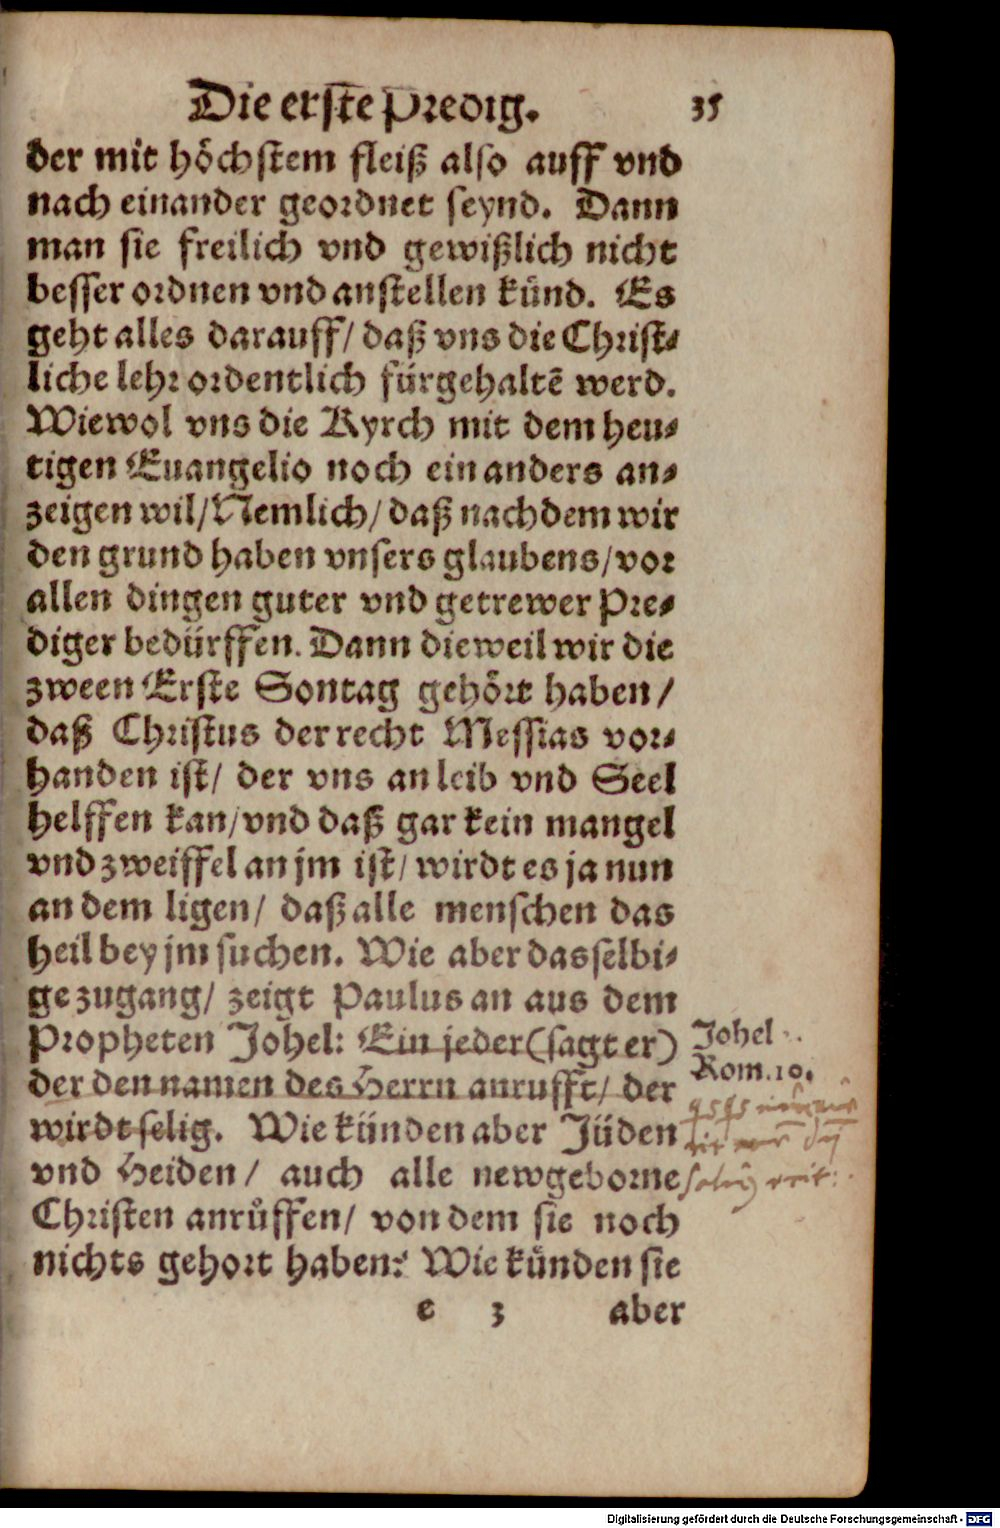 Die erste Predig. 35
der mit höchstem fleiß also auff vnd
nach einander geordnet seynd. Dann
man sie freilich vnd gewißlich nicht
besser ordnen vnd anstellen künd. Es
geht alles darauff/ daß vns die Christ-
liche lehr ordentlich fürgehaltẽ werd.
Wiewol vns die Kyrch mit dem heu-
tigen Euangelio noch ein anders an-
zeigen wil/ Nemlich/ daß nach dem wir
den grund haben vnsers glaubens/ vor
allen dingen guter vnd getrewer Pre-
diger bedürffen. Dann dieweil wir die
zween Erste Sontag gehört haben/
daß Christus der recht Messias vor-
handen ist/ der vns an leib vnd Seel
helffen kan/ vnd daß gar kein mangel
vnd zweiffel an jm ist/ wirdt es ja nun
an dem ligen/ daß alle menschen das
heil bey jm suchen. Wie aber dasselbi-
ge zugang/ zeigt Paulus an aus dem
Propheten Johel: Ein jeder (sagt er)
der den namen des Herrn anrufft/ der
wirdt selig. Wie künden aber Jüden
vnd Heiden/ auch alle newgeborne
Christen anrůffen/ von dem sie noch
nichts gehort haben? Wie künden sie
e 3 aber
Johel
Rom. 10.
Digitalisierung gefördert durch die Deutsche Forschungsgemeinschaft - DFG